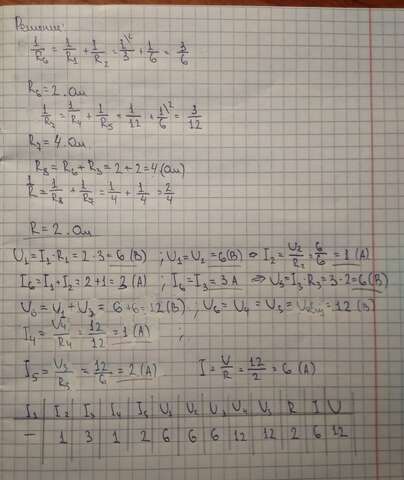 Решение
1/R₆ = 1/R₁ + 1/R₂ = 1\²/3 + 1/6 = 3/6
R₆ = 2. Ом
1/R₇ = 1/R₄ + 1/R₅ = 1/12 + 1\²/6 = 3/12
R₇ = 4 Ом.
R₈ = R₆ + R₃ = 2 + 2 = 4 (Ом)
1/R = 1/R₈ + 1/R₇ = 1/4 + 1/4 = 2/4
R = 2. Ом
U₁ = I₁·R₁ = 2·3 = 6 (В) ; U₁ = U₂ = 6(В) ⇒ I₂ = U₂/R₂ = 6/6 = 1 (А)
I₆ = I₁ + I₂ = 2 + 1 = 3 (А) ; I₆ = I₃ = 3 А ⇒ U₃ = I₃·R₃ = 3·2 = 6(В)
U₆ = U₁ + U₃ = 6+6 = 12(В) ; U₆ = U₄ = U₅ = 12 (В)
I₄ = U₄/R₄ = 12/12 = 1 (А) ;
I₅ = U₅/R₅ = 12/6 = 2 (А) I = U/R = 12/2 = 6 (А)
I₁ I₂ I₃ I₄ I₅ U₁ U₂ U₃ U₄ U₅ R I U
— 1 3 1 2 6 6 6 12 12 2 6 12